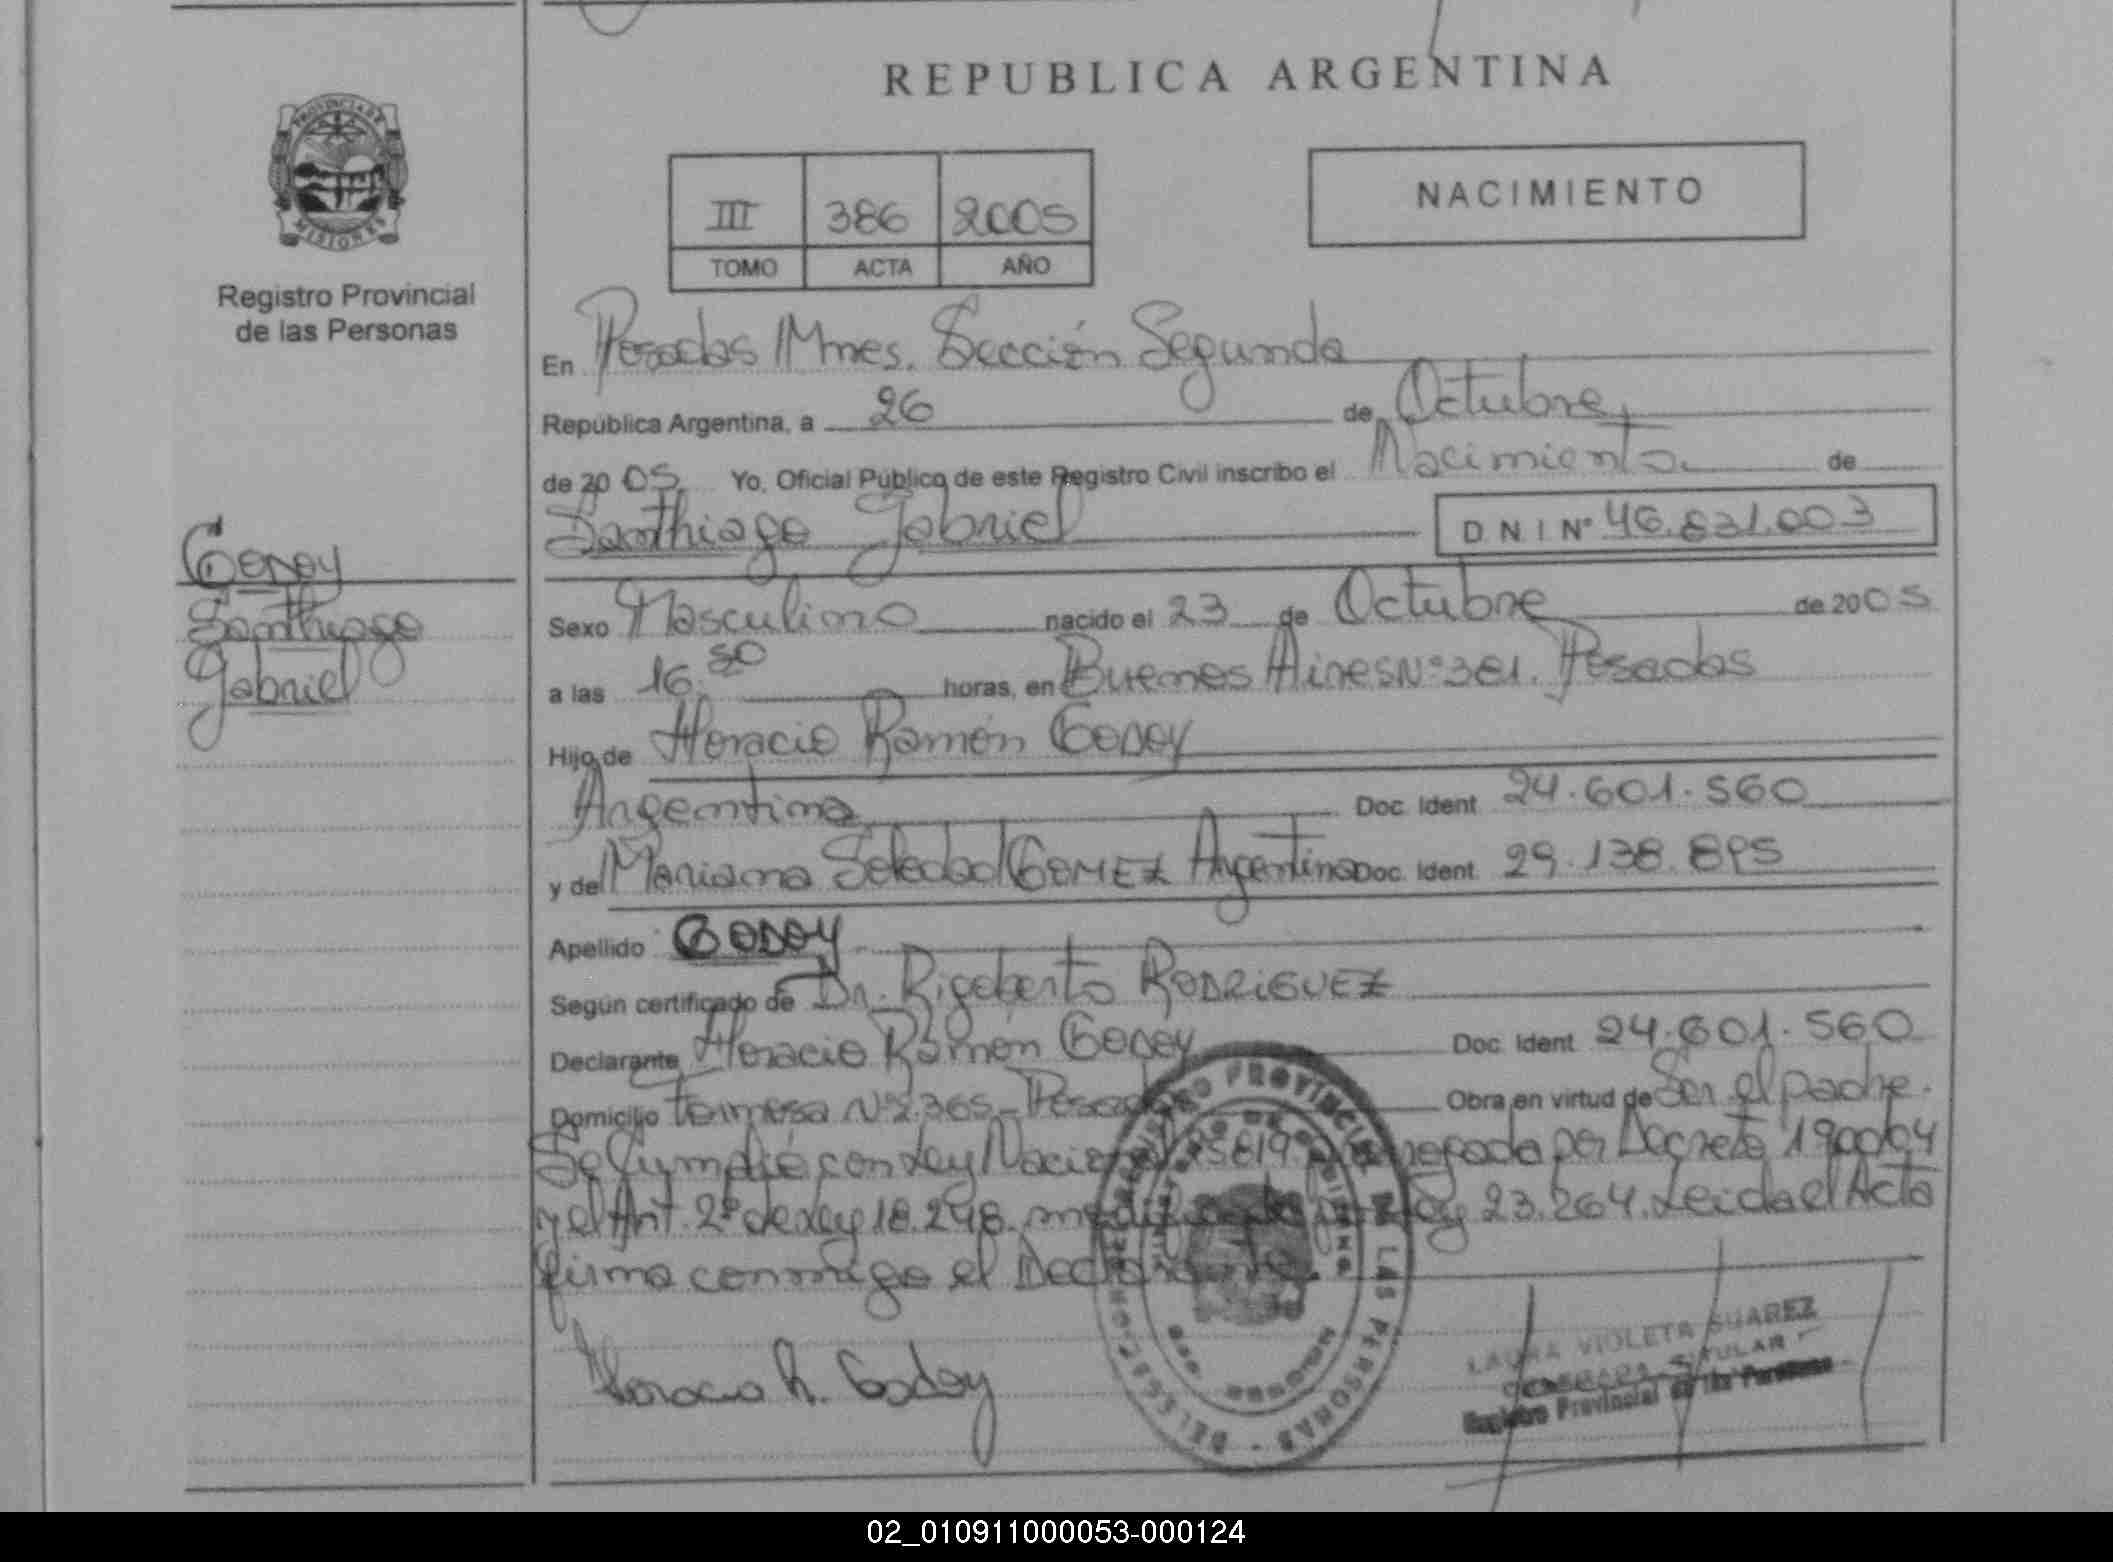 REPUBLICA ARGENTINA
PROVINCIA DE
MISIONES
Registro Provincial
de las Personas
III 386 2005
TOMO ACTA AÑO
NACIMIENTO
En Posadas Mnes. Sección Segunda
República Argentina, a 26 de Octubre
de 2005. Yo, Oficial Público de este Registro Civil inscribo el Nacimiento de
Santhiago Gabriel D N I Nº 46.831.003
GODOY
Santhiago
Gabriel
Sexo Masculino nacido el 23 de Octubre de 2005
a las 16:30 horas, en Buenos Aires Nº 381. Posadas
Hijo de Horacio Ramón GODOY
Argentina Doc. Ident. 24.601.560
y de Mariana Soledad GOMEZ Argentina Doc. Ident. 29.138.895
Apellido GODOY
Según certificado de Dr. Rigoberto RODRIGUEZ
Declarante Horacio Ramón GODOY Doc. Ident. 24.601.560
Domicilio Formosa Nº 2.365 - Obra en virtud de Ser el padre.
Se Cumplió con Ley Nacional por Decreto
y el Art. 2º de Ley 18.248. modificado Ley 23.264. Leida el Acta
firma conmigo el Declarante.
REGISTRO PROVINCIAL DE LAS PERSONAS
Horacio R. Godoy
LAURA VIOLETA SUAREZ
TITULAR
Registro Provincial de las Personas
02_010911000053-000124